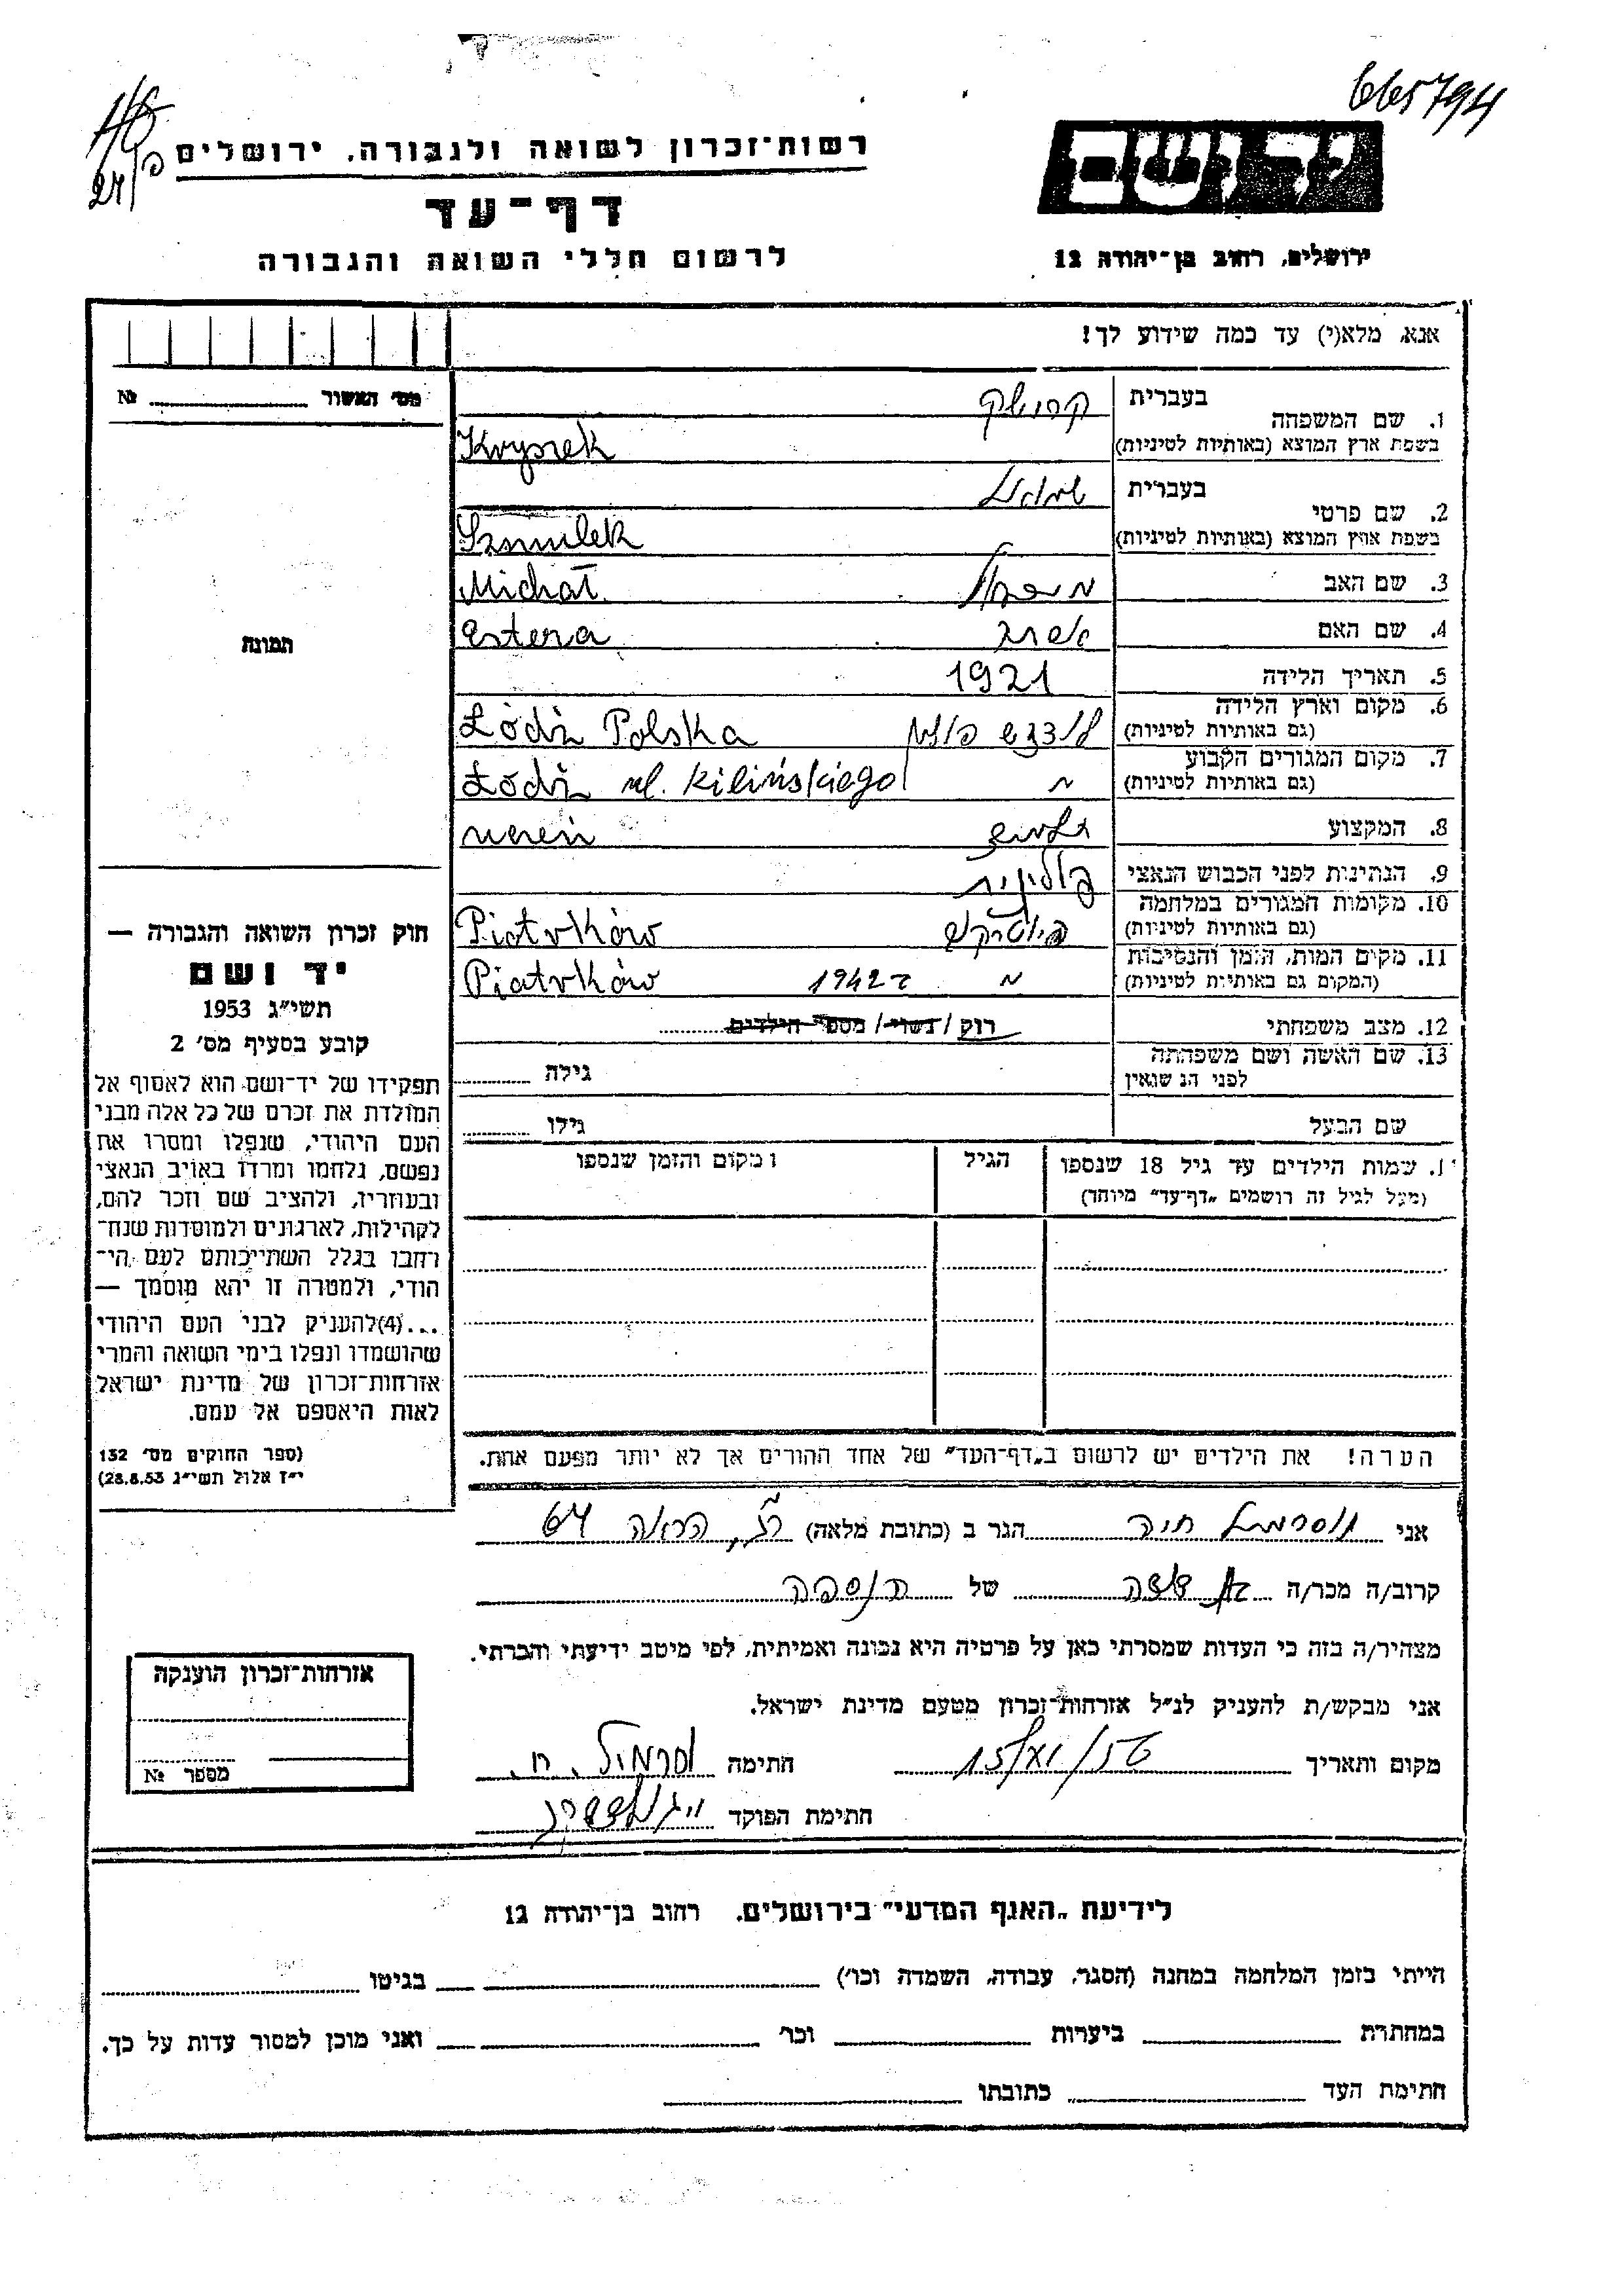 665794
רשות־זכרון לשואה ולגבורה, ירושלים
ידושם
דף־עד
לרשום חללי השואה והגבורה
ירושלים, רחוב בן־יהודה 12
אנא, מלא(י) עד כמה שידוע לך!
מס׳ האשור № 
1. שם המשפחה בעברית
קרושק
בשפת ארץ המוצא (באותיות לטיניות)
Kryszek
2. שם פרטי בעברית
בשפת ארץ המוצא (באותיות לטיניות)
Szmulek
3. שם האב
Michał
4. שם האם
Estera
5. תאריך הלידה 1921
6. מקום וארץ הלידה
(גם באותיות לטיניות)
Łódź Polska
7. מקום המגורים הקבוע
(גם באותיות לטיניות)
Łódź ul. Kilińskiego
8. המקצוע
uczeń
9. הנתינות לפני הכבוש הנאצי
פולנית
10. מקומות המגורים במלחמה
(גם באותיות לטיניות)
Piotrków
11. מקום המות, הזמן והנסיבות
(המקום גם באותיות לטיניות)
1942 Piotrków
12. מצב משפחתי רוק / נשוי / מספר הילדים
13. שם האשה ושם משפחתה
לפני הנשואין
גילה
שם הבעל גילו
שמות הילדים עד גיל 18 שנספו
(מעל לגיל זה רושמים „דף־עד" מיוחד)
הגיל
מקום והזמן שנספו
הערה! את הילדים יש לרשום ב„דף־העד" של אחד ההורים אך לא יותר מפעם אחת.
תמונה
חוק זכרון השואה והגבורה —
יד ושם
תשי״ג 1953
קובע בסעיף מס׳ 2
תפקידו של יד־ושם הוא לאסוף אל
המולדת את זכרם של כל אלה מבני
העם היהודי, שנפלו ומסרו את
נפשם, נלחמו ומרדו באויב הנאצי
ובעוזריו, ולהציב שם וזכר להם,
לקהילות, לארגונים ולמוסדות שנח־
רחבו בגלל השתייכותם לעם הי־
הודי, ולמטרה זו יהא מוסמך —
...(4)להעניק לבני העם היהודי
שהושמדו ונפלו בימי השואה והמרי
אזרחות־זכרון של מדינת ישראל
לאות היאספם אל עמם.
(ספר החוקים מס׳ 132
י״ז אלול תשי״ג 28.8.53)
אני וסרמיל חיה הגר ב (כתובת מלאה) ר״ג, הרואה 64
קרוב/ה מכר/ה של
מצהיר/ה בזה כי העדות שמסרתי כאן על פרטיה היא נכונה ואמיתית, לפי מיטב ידיעתי והכרתי.
אני מבקש/ת להעניק לנ״ל אזרחות־זכרון מטעם מדינת ישראל.
מקום ותאריך
חתימה וסרמיל. ח.
חתימת הפוקד
אזרחות־זכרון הוענקה
מספר №
לידיעת „האגף המדעי" בירושלים, רחוב בן־יהודה 12
הייתי בזמן המלחמה במחנה (הסגר, עבודה, השמדה וכו׳) בגיטו
במחתרת ביערות וכו׳ ואני מוכן למסור עדות על כך.
חתימת העד כתובתו